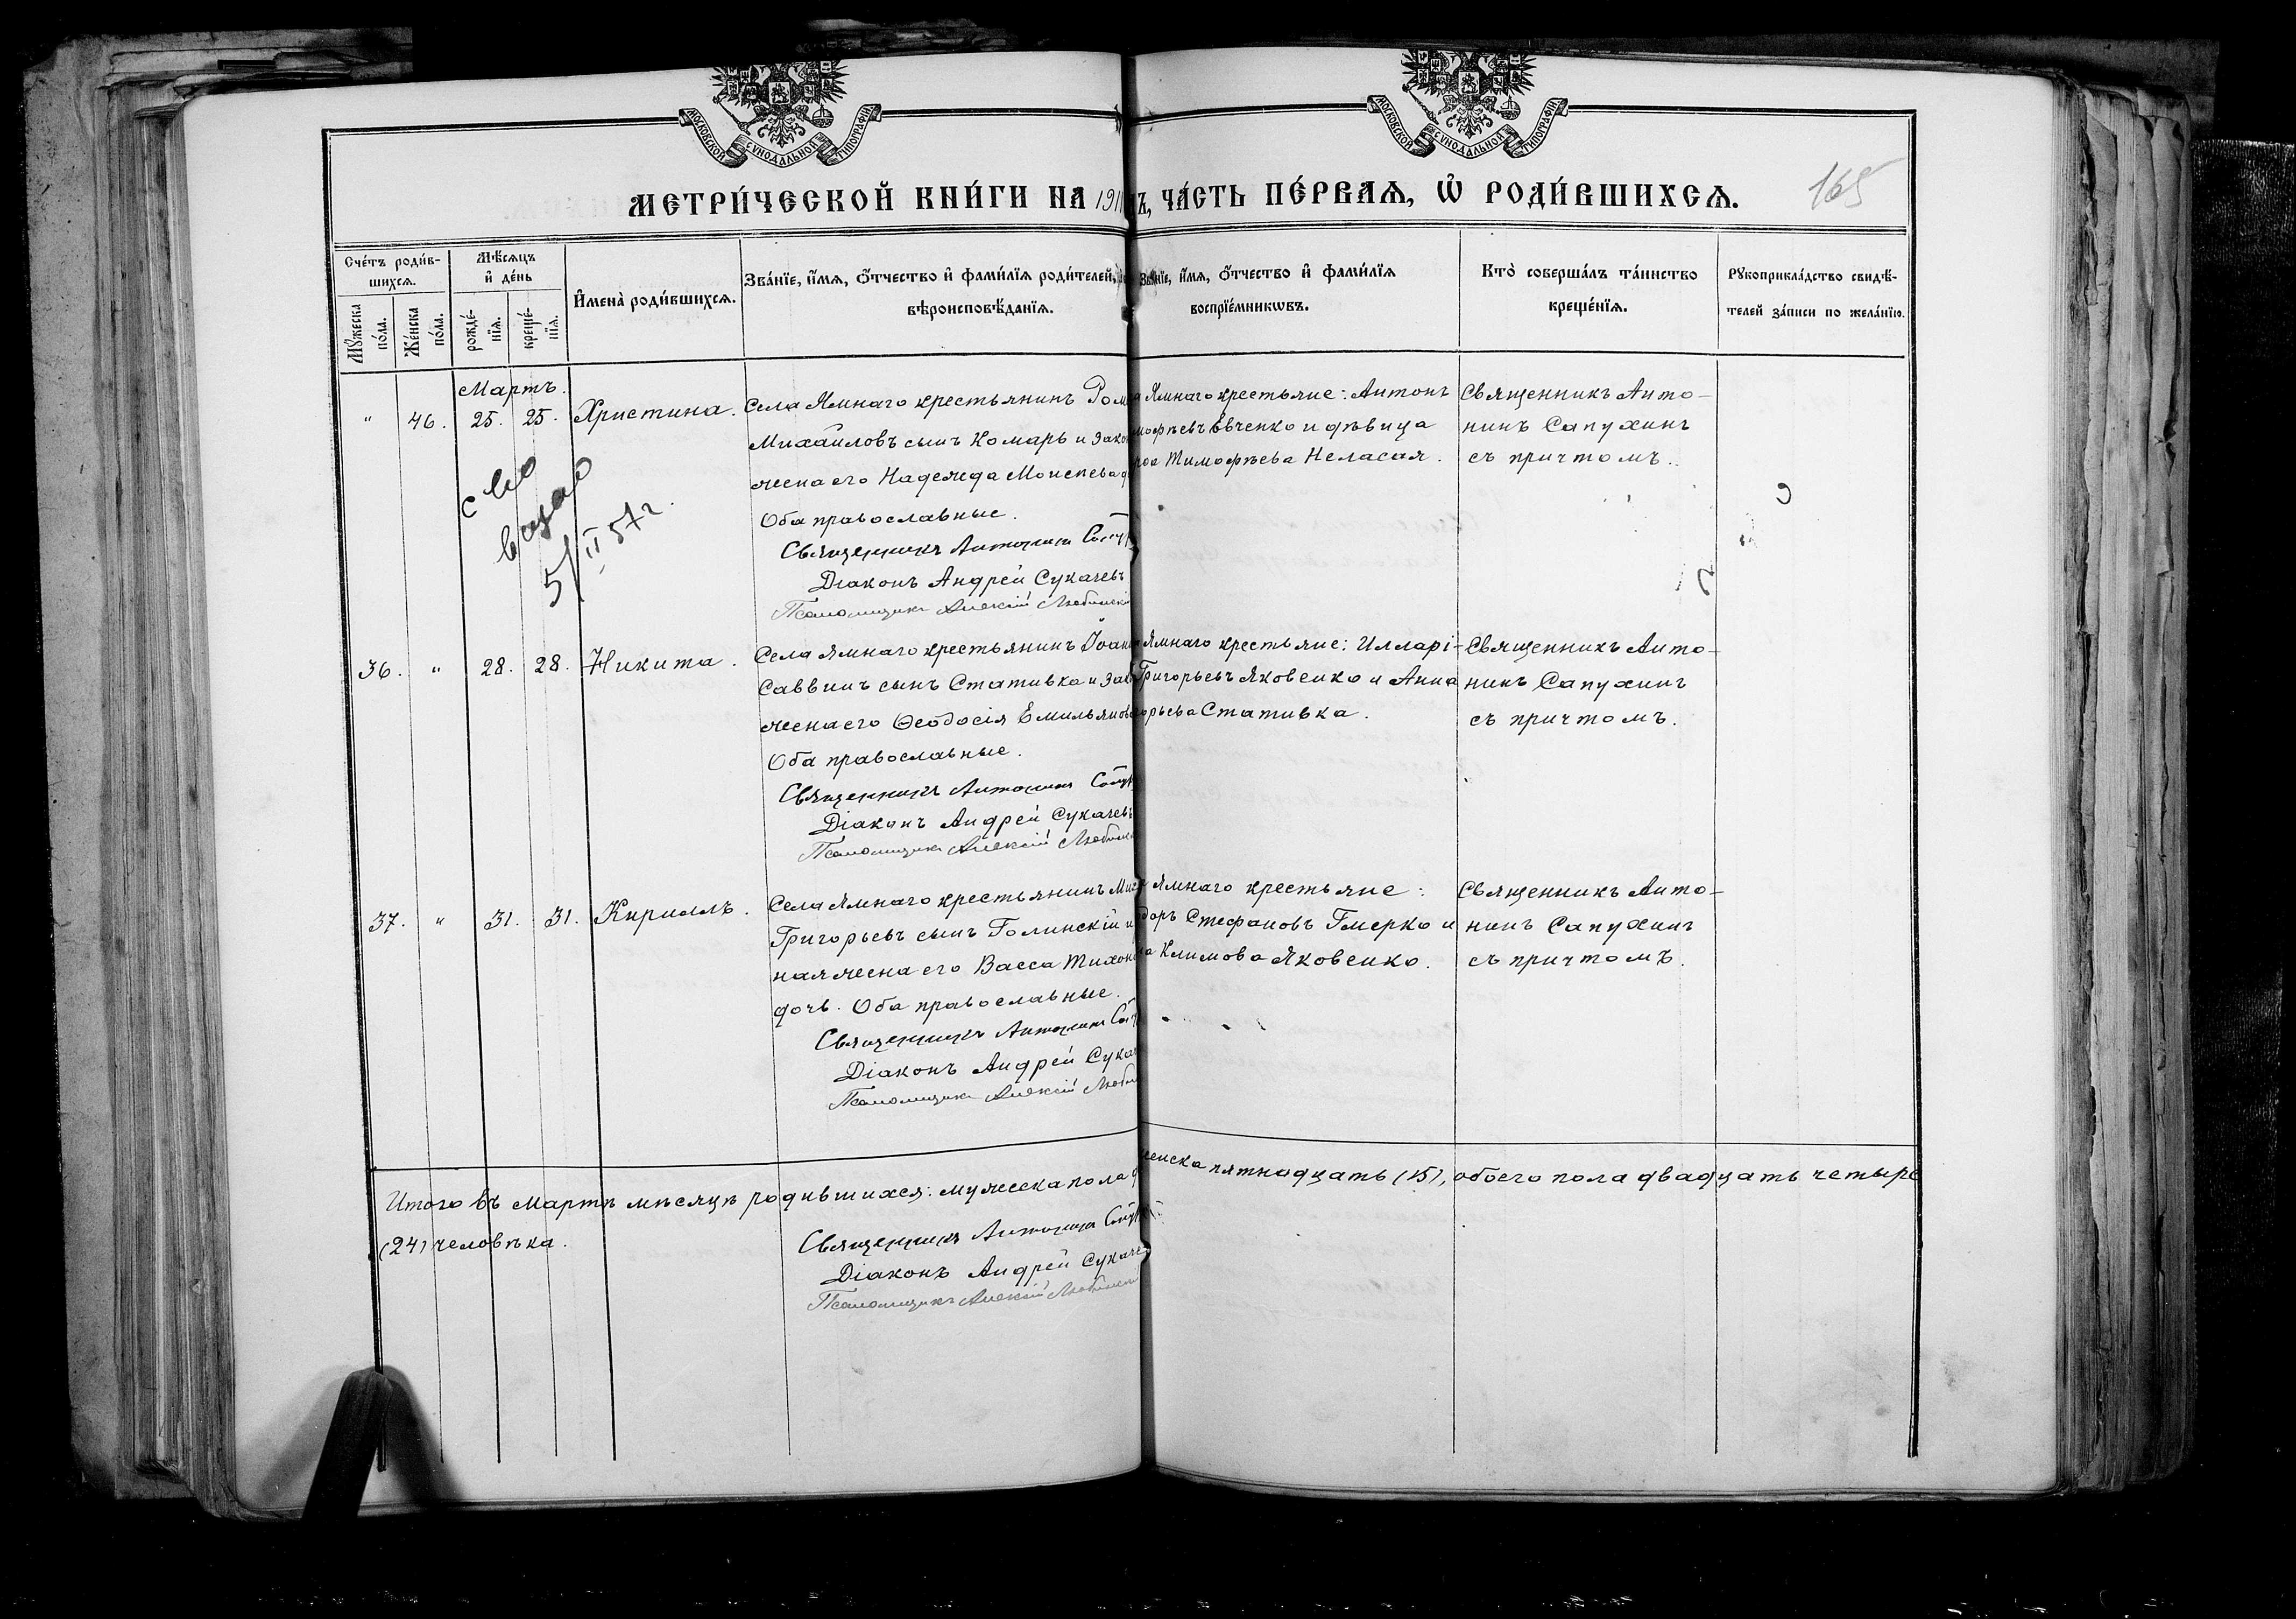 МОСКОВСКОЙ СѴНОДАЛЬНОЙ ТИПОГРАФІИ
МОСКОВСКОЙ СѴНОДАЛЬНОЙ ТИПОГРАФІИ
МЕТРИ́ЧЕСКОЙ КНИ́ГИ НА 1911
Ъ, ЧА́СТЬ ПЕ́РВАѦ, Ѡ҆ РОДИ́ВШИХСѦ.
165
Сче́тъ роди́в-
шихсѧ.
Мѣ́сѧцъ
и҆ де́нь
Мꙋ́жеска
по́ла.
Же́нска
по́ла.
рожде́-
нїѧ.
креще́-
нїѧ.
И҆мена̀ роди́вшихсѧ.
Зва́нїе, и҆́мѧ, ѻ҆́тчество и҆ фами́лїѧ роди́телей,
вѣроисповѣ́данїѧ.
Зва́нїе, и҆́мѧ, ѻ҆́тчество и҆ фами́лїѧ
воспрїе́мникѡвъ.
Кто̀ соверша́лъ та́инство
креще́нїѧ.
Рꙋкоприкла́дство свидѣ́-
телей за́писи по жела́нїю.
Мартъ.
" 46. 25. 25. Христина.
Села Ямнаго крестьянинъ Ром
Михаиловъ сынъ Комарь и зако
жена его Надежда Моисеева
Оба православные.
Священникъ Антонин Сапух
Діаконъ Андрей Сукачевъ
Псаломщикъ Алексій Любинскі
Ямнаго крестьяне: Антонъ
мофѣевъ Евченко и дѣвица
Тимофѣева Неласая.
Священникъ Анто-
нинъ Сапухинъ
съ причтомъ.
5/II 57 г.
36. " 28. 28. Никита.
Села Ямнаго крестьянинъ Іоан
Саввинъ сынъ Стативка и зак
жена его Ѳеодосія Емильянов
Оба православные.
Священникъ Антонин Сапух
Діаконъ Андрей Сукачевъ
Псаломщикъ Алексій Любинс
Ямнаго крестьяне: Илларі-
Григорьевъ Яковенко и Анна
горьева Стативка.
Священникъ Анто-
нинъ Сапухинъ
съ причтомъ.
37. " 31. 31. Кириллъ.
Села Ямнаго крестьянинъ Ми
Григорьевъ сынъ Голинскій и
ная жена его Васса Тихон
дочь. Оба православные.
Священникъ Антонин Сап
Діаконъ Андрей Сукач
Псаломщикъ Алексій Любин
Ямнаго крестьяне:
доръ Стефановъ Гмерко и
Климова Яковенко.
Священникъ Анто-
нинъ Сапухинъ
съ причтомъ.
Итого въ Мартѣ мѣсяцѣ родившихся: мужеска пола
женска пятнадцать (15), обоего пола двадцать четыре
(24) человѣка.
Священникъ Антонин Сапух
Діаконъ Андрей Сукаче
Псаломщикъ Алексій Любинскі